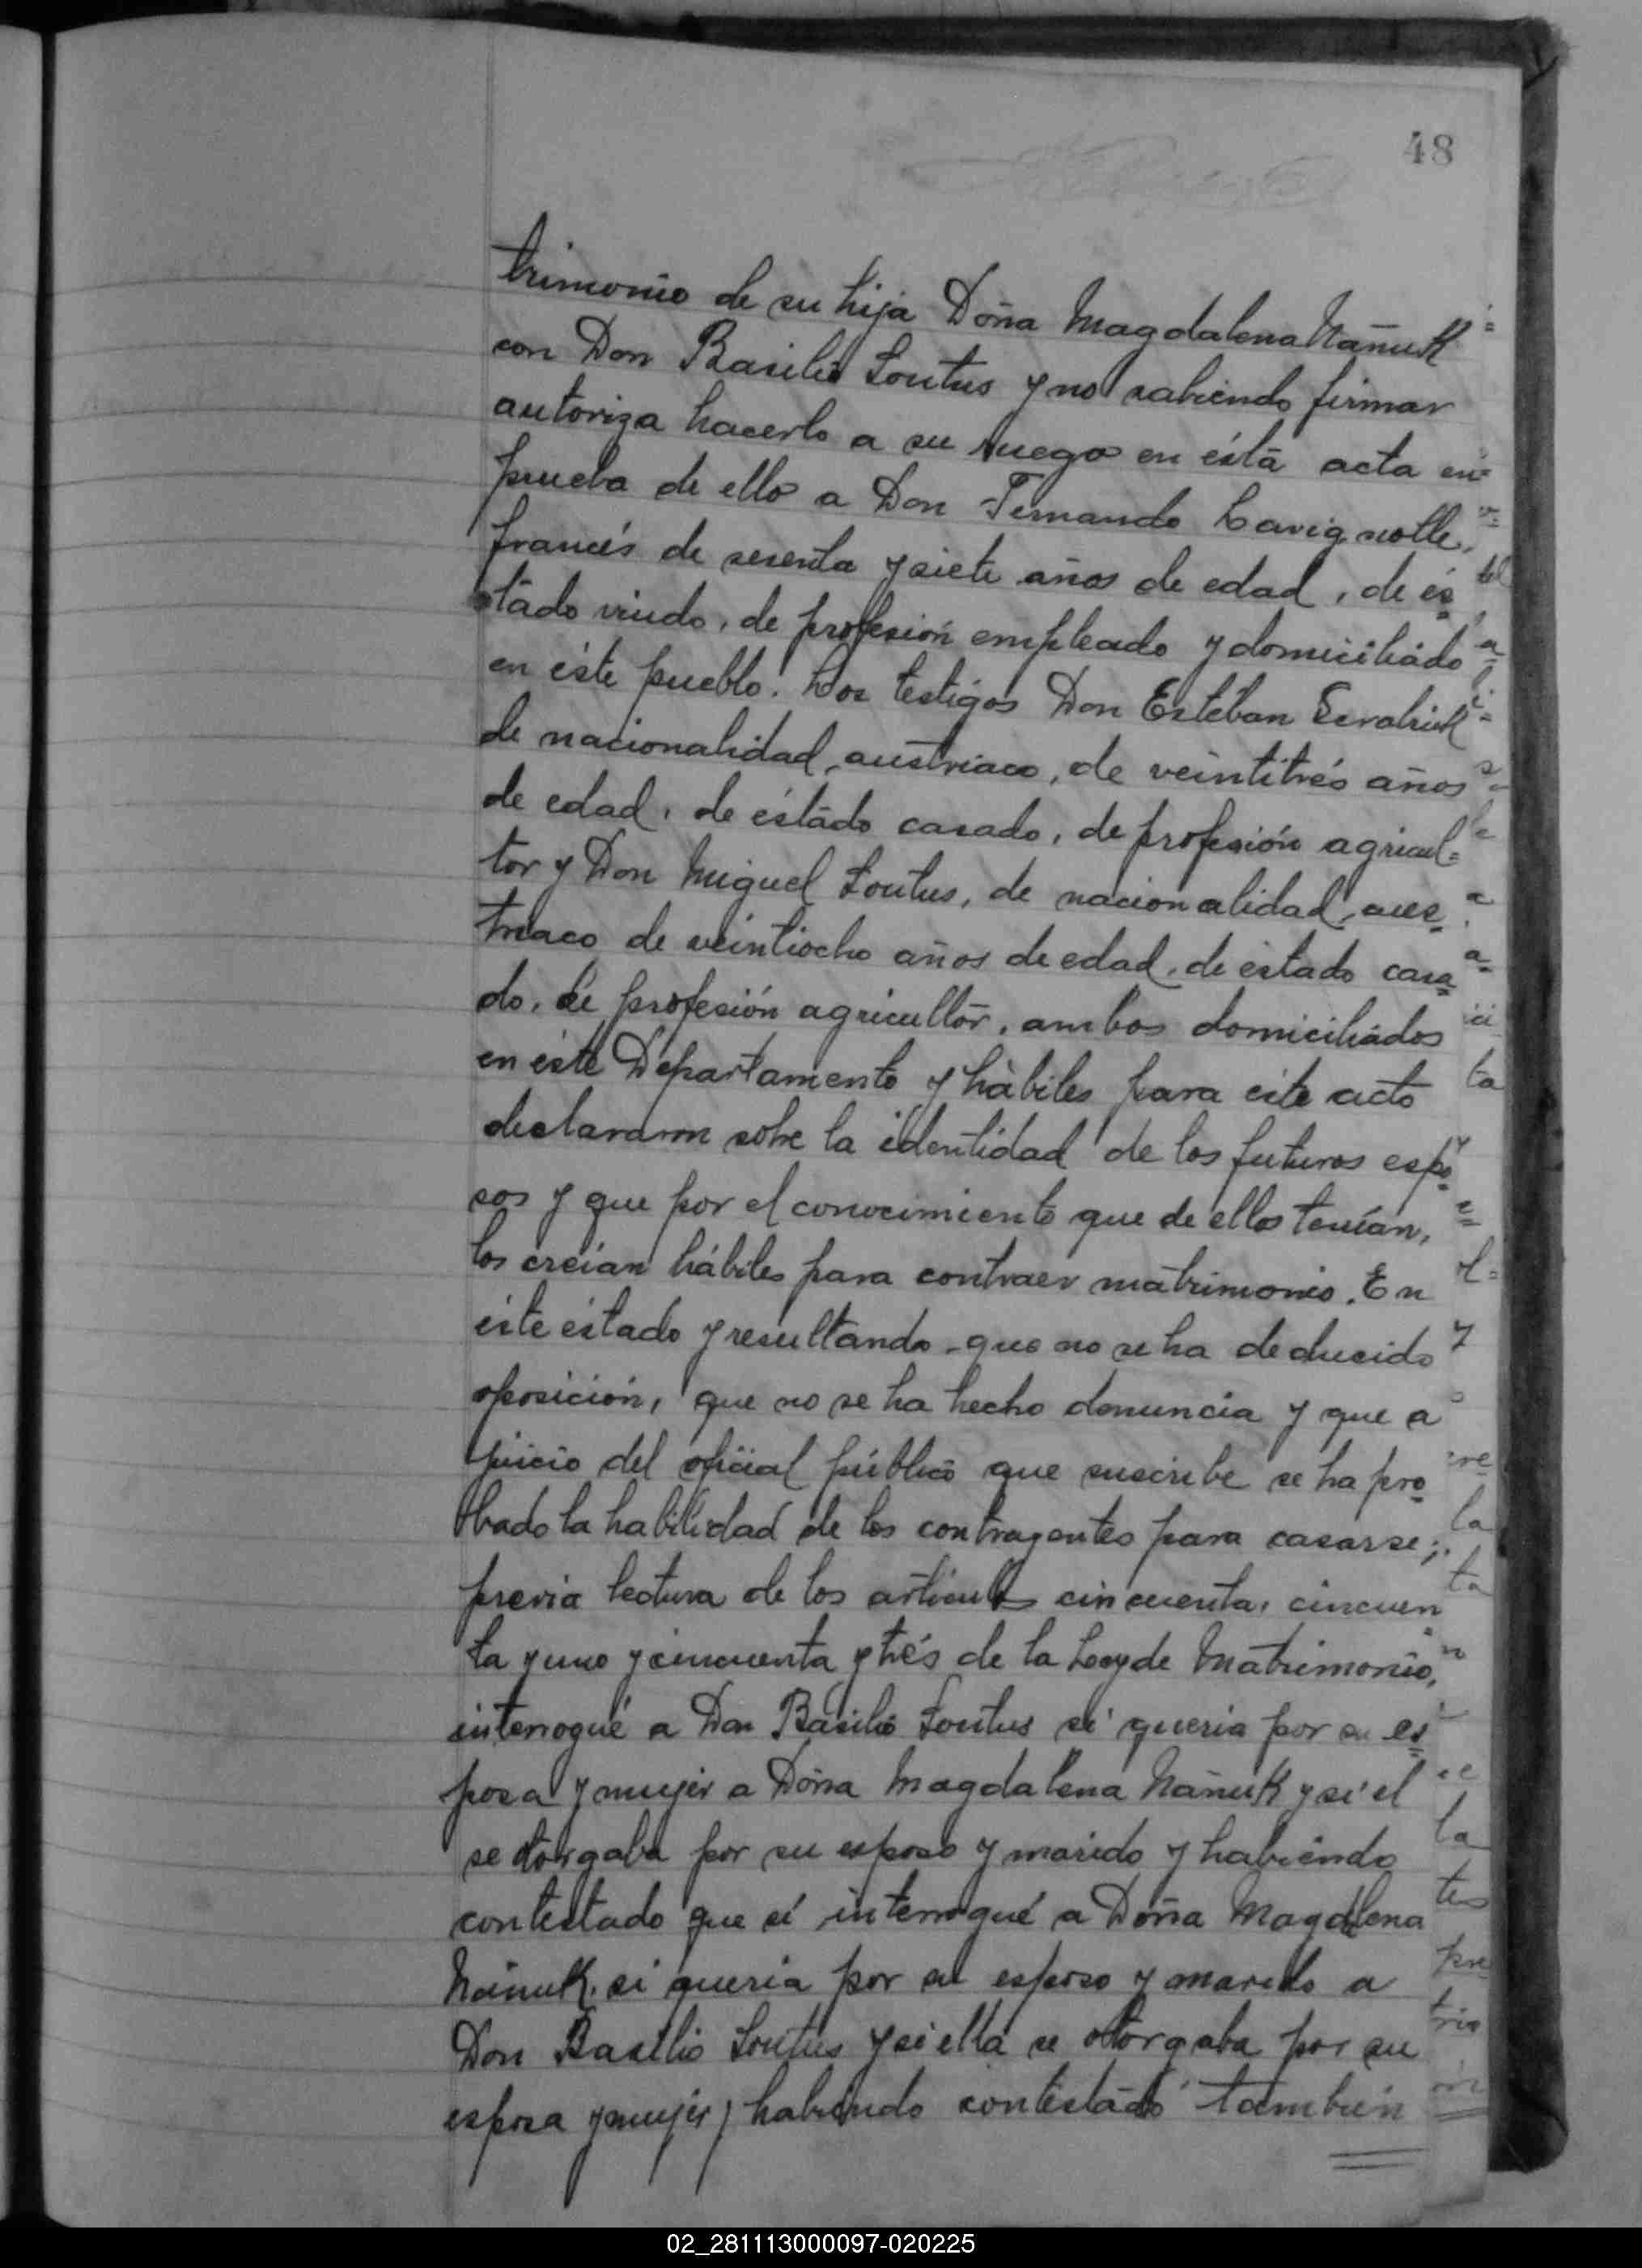 48
trimonio de su hija Doña Magdalena Nañuk
con Don Basilio Loutus y no sabiendo firmar
autoriza hacerlo a su ruego en ésta acta en
prueba de ello a Don Fernando Lavignolle,
francés de sesenta y siete años de edad, de es=
tado viudo, de profesión empleado y domiciliado
en éste pueblo. Los testigos Don Estéban
de nacionalidad austriaco, de veintitrés años
de edad, de éstado casado, de profesión agricul=
tor y Don Miguel Loutus, de nacionalidad aus=
triaco de veintiocho años de edad, de éstado casa=
do, de profesión agricultor, ambos domiciliados
en éste Departamento y hàbiles para éste acto
declararon sobre la identidad de los futuros espo=
sos y que por el conocimiento que de ellos tenían,
los creían hábiles para contraer matrimonio. En
éste éstado y resultando que no se ha deducido
oposición, que no se ha hecho denuncia y que a
juicio del oficial público que suscribe se ha pro=
bado la habilidad de los contrayentes para casarse;
previa lectura de los articulos cincuenta, cincuen
ta y uno y cincuenta y trés de la Ley de Matrimonio,
interrogué a Don Basilio Loutus si queria por su es=
posa y mujer a Doña Magdalena Nañuk y si él
se otorgaba por su esposo y marido y habiendo
contestado que sí interrogué a Doña Magdlena
Nañuk si queria por su esposo y marido a
Don Basilio Loutus y si ella se otorgaba por su
esposa y mujer y habiendo contestado también
02_281113000097-020225